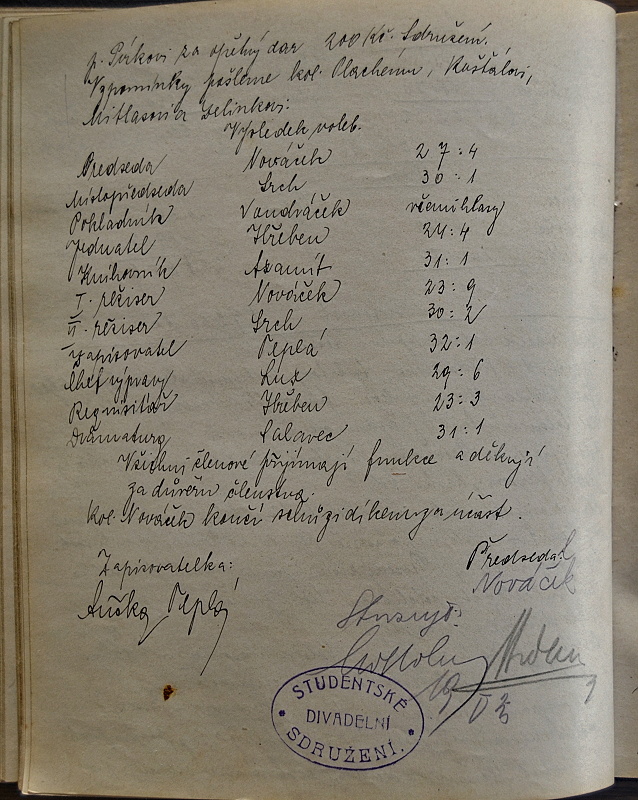 p. Svíkovi za opětný dar 200 Kč. Sdružení.
Vzpomínky pošleme kol. Plachému, Košťálovi,
Mitlasovi a Zelinkovi.
Výsledek voleb.
Předseda Nováček 27:4
Místopředseda Srch 30:1
Pokladník Vondráček všemi hlasy
Jednatel Hřeben 24:4
Knihovník Axamit 31:1
I. režiser Nováček 23:9
II. režiser Srch 30:2
Zapisovatel Teplá 32:1
Chef výpravy Lux 29:6
Requisitář Hřeben 23:3
Dramaturg Salavec 31:1
Všichni členové přijímají funkce a děkují
za důvěru členstva.
Kol. Nováček končí schůzi díkem za účast.
Zapisovatelka: Předseda:
Nováček
Anška Teplá
STUDENTSKÉ
DIVADELNÍ
SDRUŽENÍ.